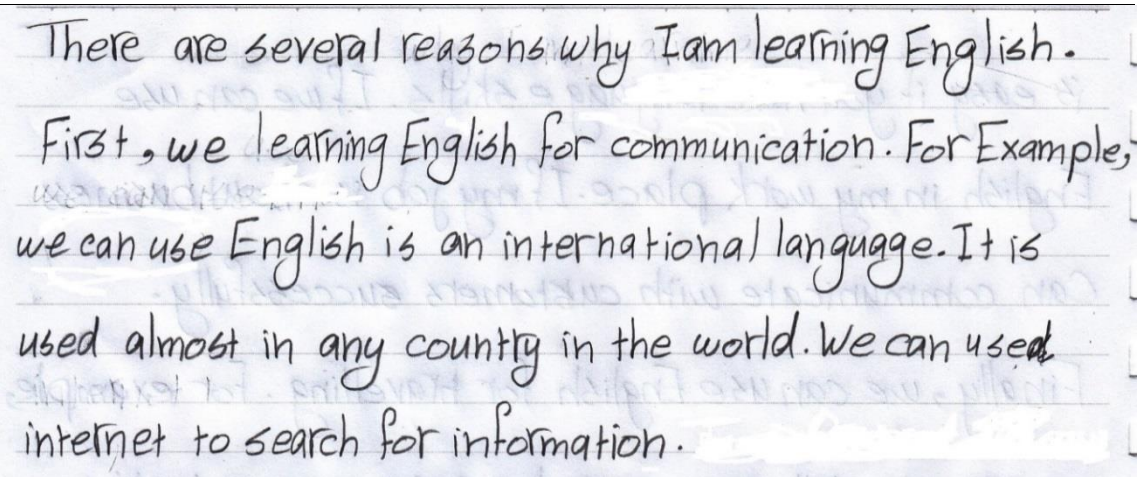 There are several reasons why I am learning English.
First, we learning English for communication. For Example,
we can use English is an international language. It is
used almost in any country in the world. We can used
internet to search for information.